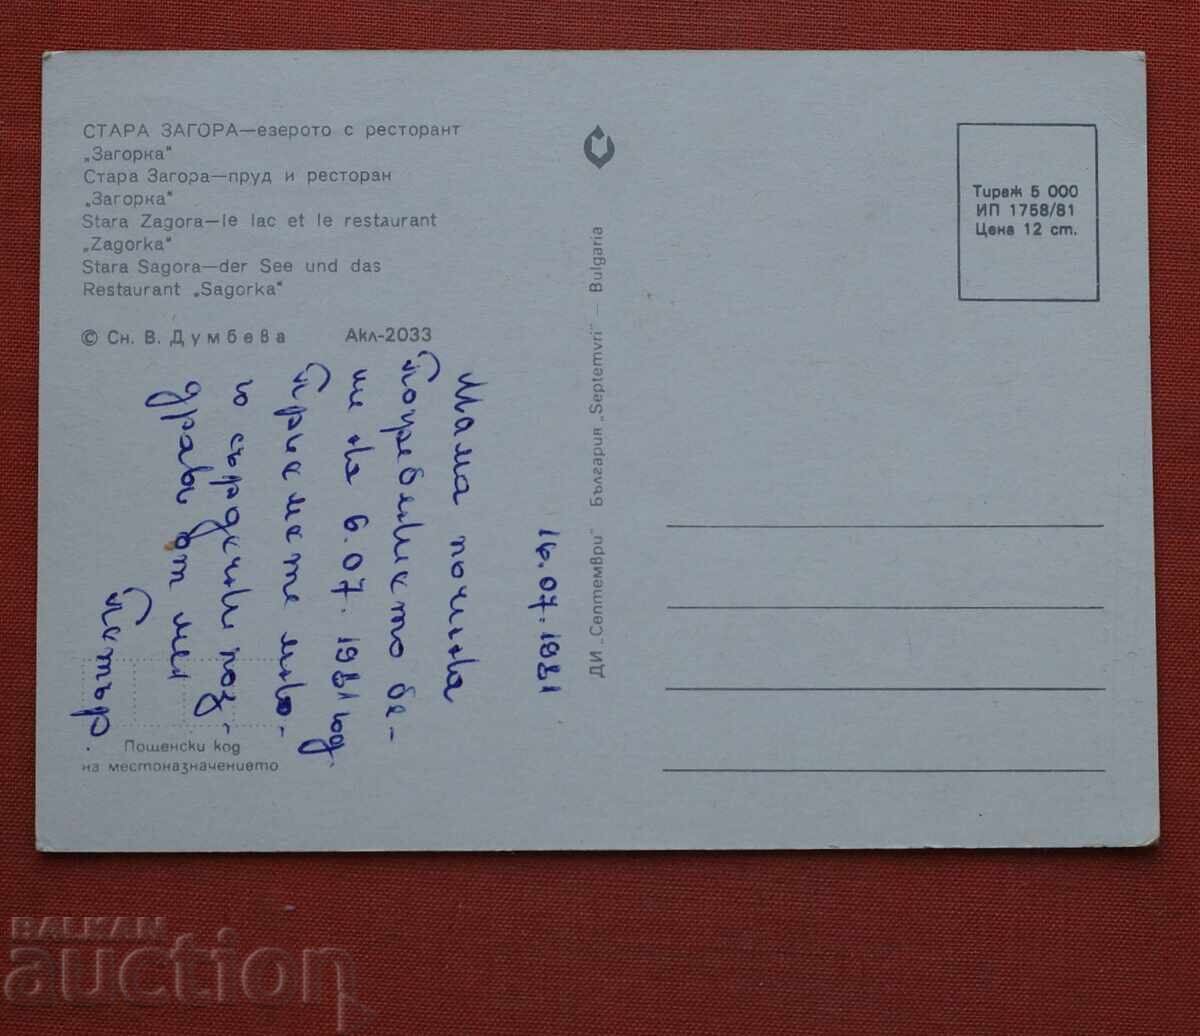 СТАРА ЗАГОРА—езерото с ресторант
„Загорка“
Стара Загора—пруд и ресторан
„Загорка“
Stara Zagora—le lac et le restaurant
„Zagorka“
Stara Sagora—der See und das
Restaurant „Sagorka“
© Сн. В. Думбева Акл-2033
16.07.1981
Мама почина
Погребението бе-
ше на 6.07.1981 год
Приемете мно-
го сърдечни поз-
драви от мен
Петър.
Пощенски код
на местоназначението
ДИ „Септември“ България „Septemvri“ — Bulgaria
Тираж 5 000
ИП 1758/81
Цена 12 ст.
BALKAN
auction